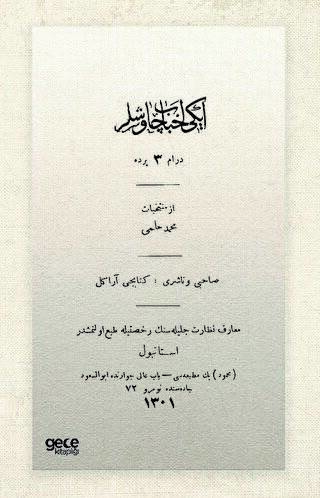 ایکی احباب چاوشلر
درام ۳ پرده
از منتخبات
محمد حلمی
صاحبی وناشری : کتابجی آراکل
معارف نظارت جلیله‌سنك رخصتیله طبع اولنمشدر
استانبول
(محمود) بك مطبعه‌سی — باب عالی جوارنده ابوالسعود
جاده‌سنده نومرو ۷۲
۱۳۰۱
gece
kitaplığı